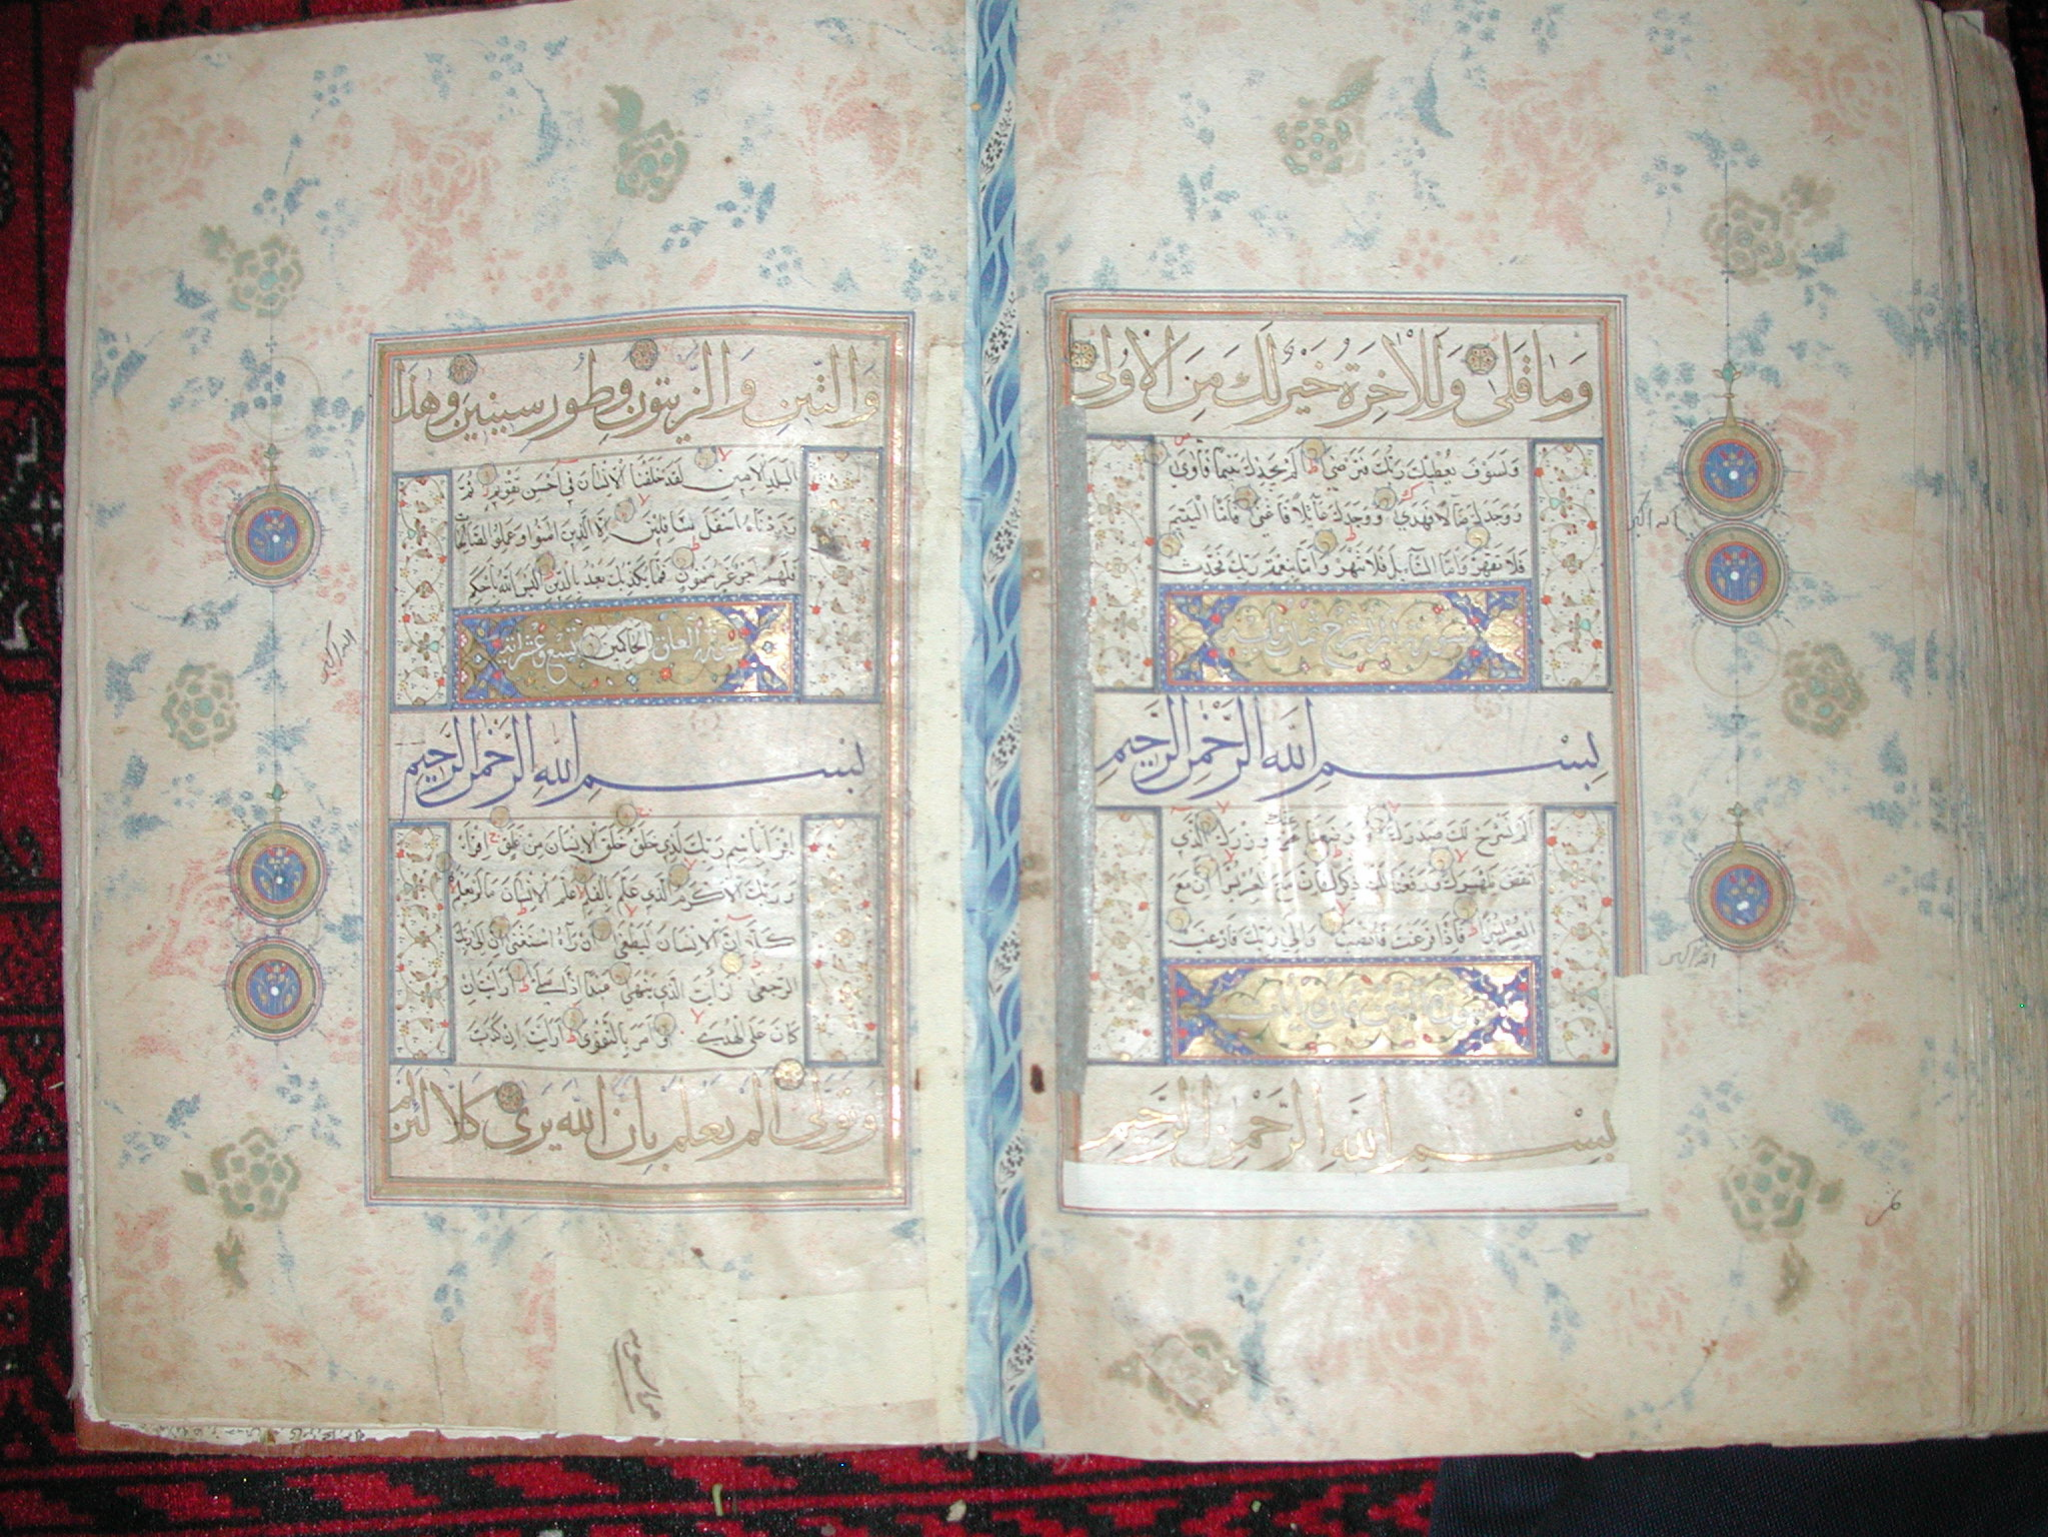 وَمَا قَلَىٰ وَلَلْاٰخِرَةُ خَيْرٌ لَكَ مِنَ الْاُولٰى
وَلَسَوْفَ يُعْطِيكَ رَبُّكَ فَتَرْضٰى اَلَمْ يَجِدْكَ يَتِيمًا فَاٰوٰى
وَوَجَدَكَ ضَالًّا فَهَدٰى وَوَجَدَكَ عَائِلًا فَاَغْنٰى فَاَمَّا الْيَتِيمَ
فَلَا تَقْهَرْ وَاَمَّا السَّائِلَ فَلَا تَنْهَرْ وَاَمَّا بِنِعْمَةِ رَبِّكَ فَحَدِّثْ
سورة الم نشرح ثمان ايات
بِسْمِ اللّٰهِ الرَّحْمٰنِ الرَّحِيمِ
اَلَمْ نَشْرَحْ لَكَ صَدْرَكَ وَوَضَعْنَا عَنْكَ وِزْرَكَ الَّذِي
اَنْقَضَ ظَهْرَكَ وَرَفَعْنَا لَكَ ذِكْرَكَ فَاِنَّ مَعَ الْعُسْرِ يُسْرًا اِنَّ مَعَ
الْعُسْرِ يُسْرًا فَاِذَا فَرَغْتَ فَانْصَبْ وَاِلٰى رَبِّكَ فَارْغَبْ
سورة التين ثمان ايات
بِسْمِ اللّٰهِ الرَّحْمٰنِ الرَّحِيمِ
وَالتِّينِ وَالزَّيْتُونِ وَطُورِ سِينِينَ وَهٰذَا
الْبَلَدِ الْاَمِينِ لَقَدْ خَلَقْنَا الْاِنْسَانَ فِي اَحْسَنِ تَقْوِيمٍ ثُمَّ
رَدَدْنَاهُ اَسْفَلَ سَافِلِينَ اِلَّا الَّذِينَ اٰمَنُوا وَعَمِلُوا الصَّالِحَاتِ
فَلَهُمْ اَجْرٌ غَيْرُ مَمْنُونٍ فَمَا يُكَذِّبُكَ بَعْدُ بِالدِّينِ اَلَيْسَ اللّٰهُ بِاَحْكَمِ
سورة العلق الْحَاكِمِينَ تسع وعشر اية
بِسْمِ اللّٰهِ الرَّحْمٰنِ الرَّحِيمِ
اِقْرَأْ بِاسْمِ رَبِّكَ الَّذِي خَلَقَ خَلَقَ الْاِنْسَانَ مِنْ عَلَقٍ اِقْرَأْ
وَرَبُّكَ الْاَكْرَمُ الَّذِي عَلَّمَ بِالْقَلَمِ عَلَّمَ الْاِنْسَانَ مَا لَمْ يَعْلَمْ
كَلَّا اِنَّ الْاِنْسَانَ لَيَطْغٰى اَنْ رَآهُ اسْتَغْنٰى اِنَّ اِلٰى رَبِّكَ
الرُّجْعٰى اَرَاَيْتَ الَّذِي يَنْهٰى عَبْدًا اِذَا صَلّٰى اَرَاَيْتَ اِنْ
كَانَ عَلَى الْهُدٰى اَوْ اَمَرَ بِالتَّقْوٰى اَرَاَيْتَ اِنْ كَذَّبَ
وَتَوَلّٰى اَلَمْ يَعْلَمْ بِاَنَّ اللّٰهَ يَرٰى كَلَّا لَئِنْ لَمْ
الله اكبر
الله اكبر
الله اكبر